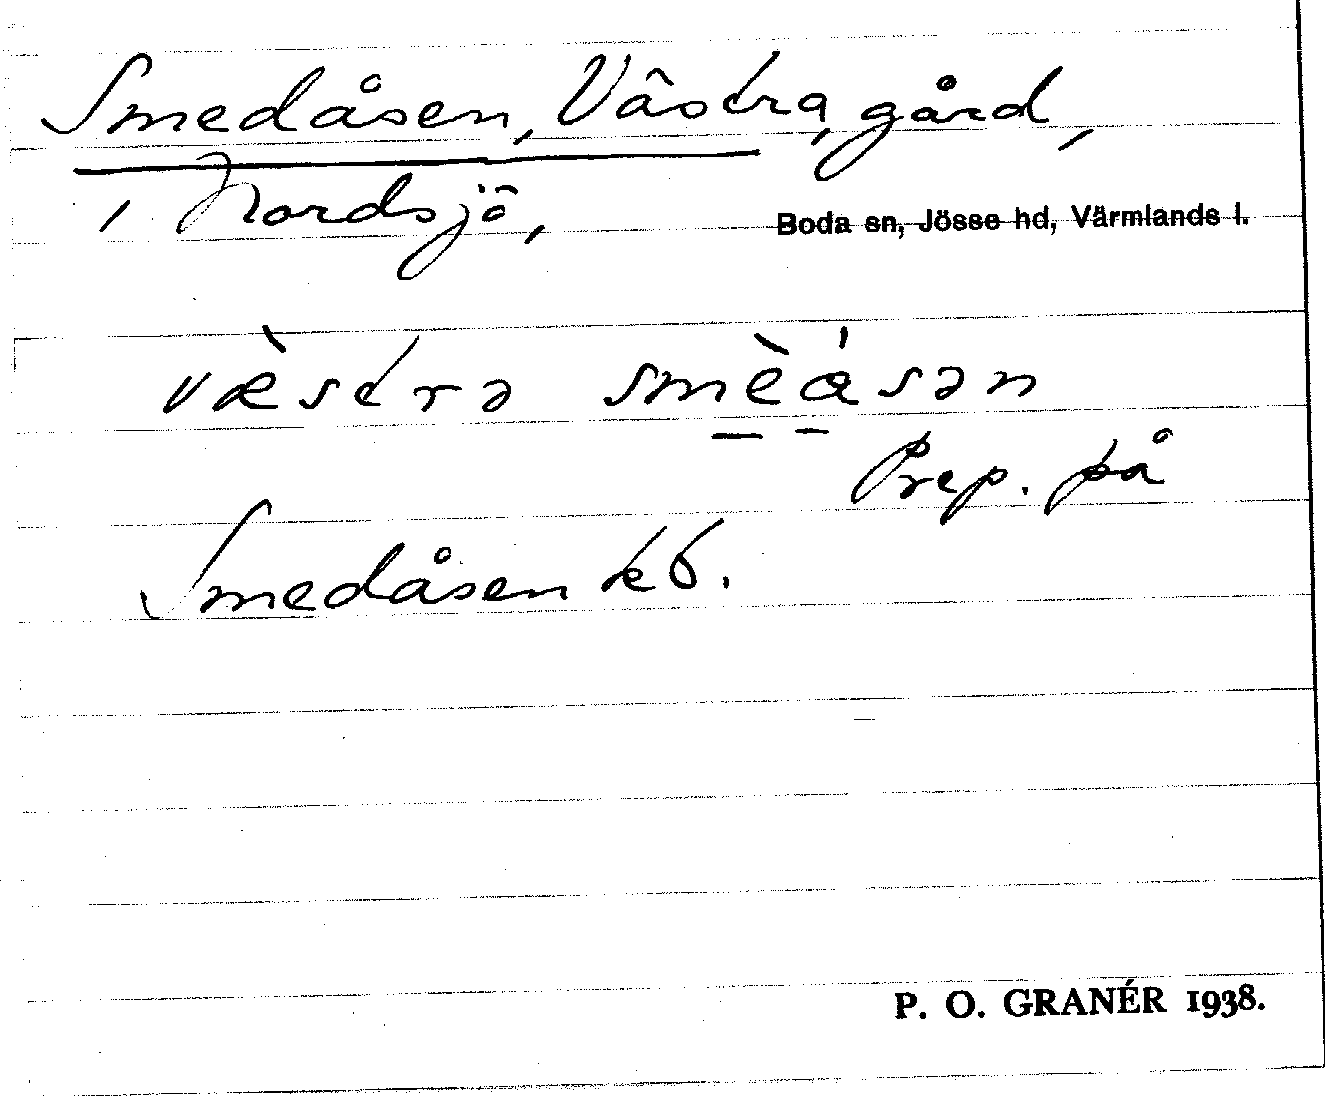 Smedåsen, Västra, gård,
i Nordsjö, Boda sn, Jösse hd, Värmlands l.
væ̀strə smèásən
Prep. på
Smedåsen kb.
P. O. GRANÉR 1938.